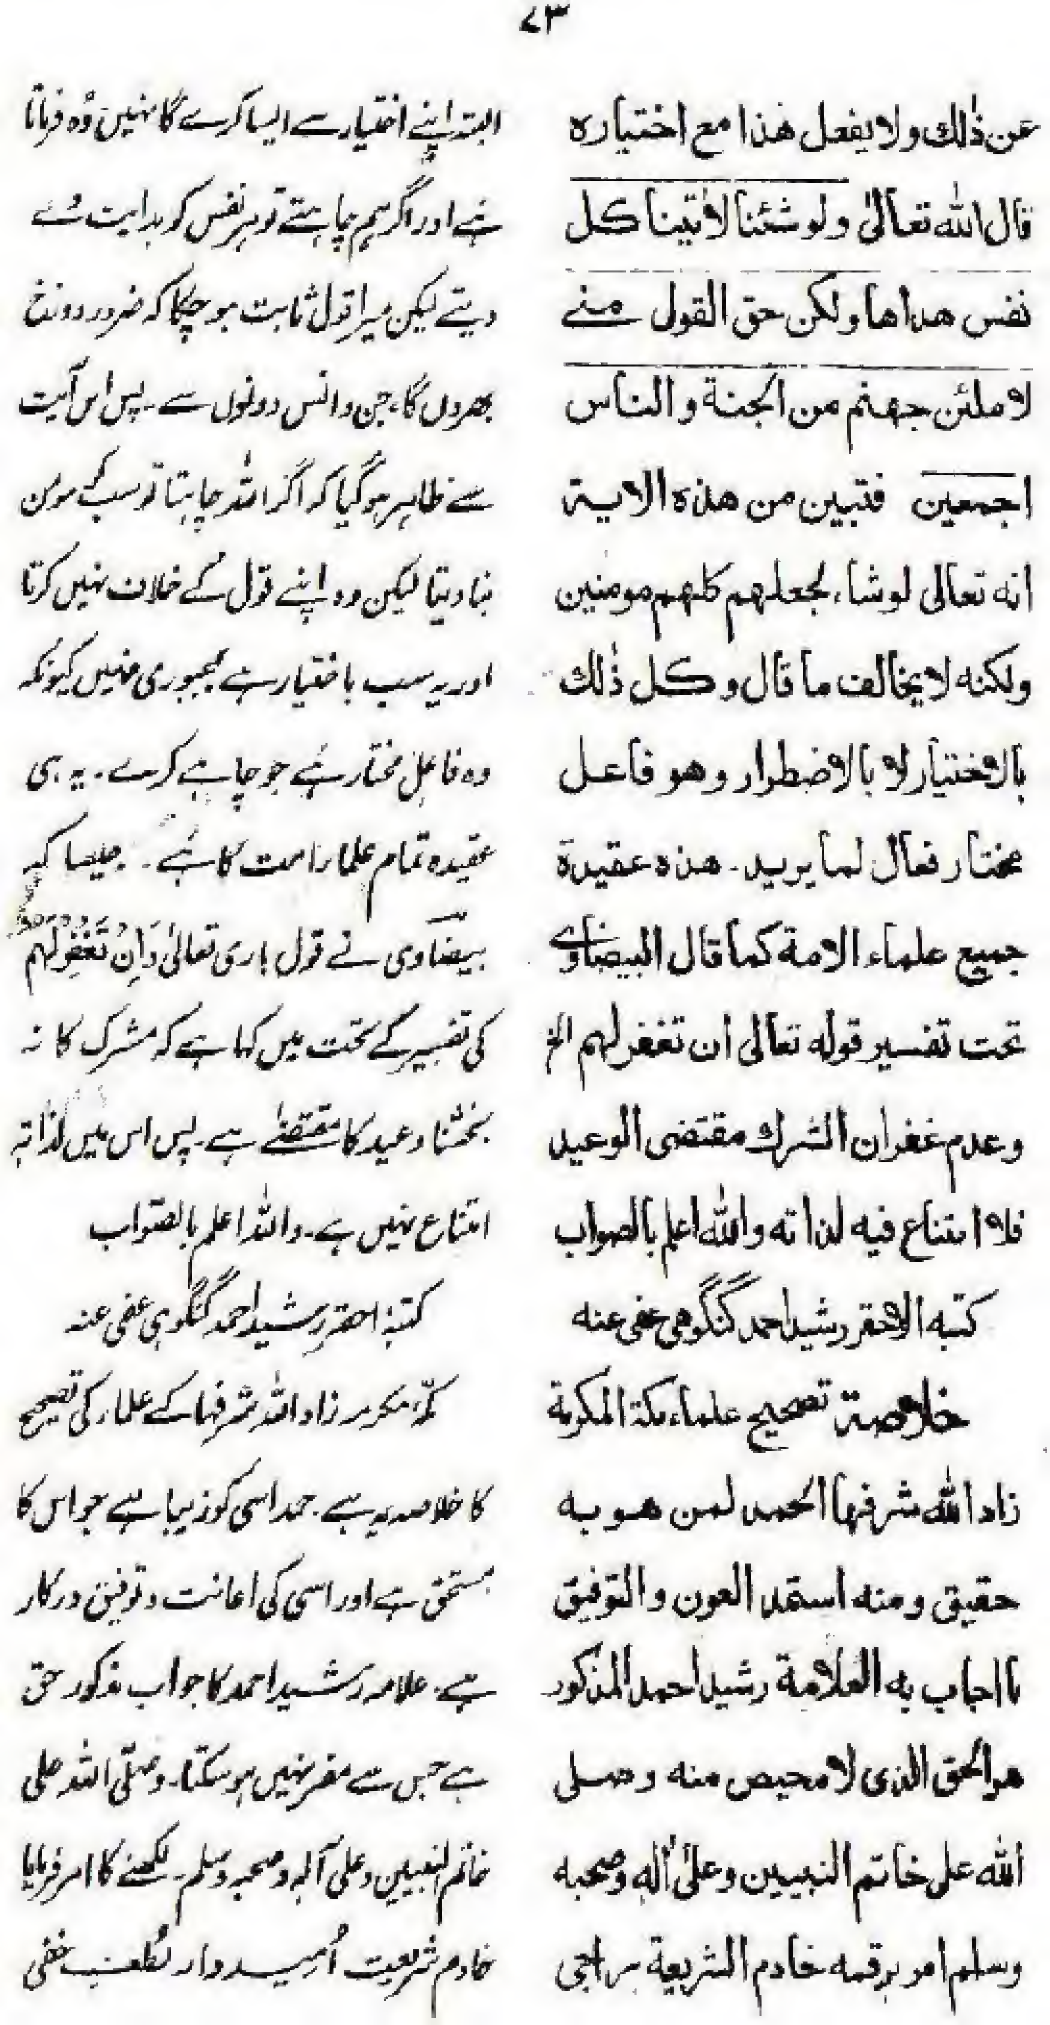 ۷۳
عن ذٰلك ولا يفعل هٰذا مع اختياره
قال الله تعالیٰ ولو شئنا لاٰتينا كل
نفس هداها ولكن حق القول منے
لاملئن جهنم من الجنة والناس
اجمعين فتبين من هذه الاية
انه تعالى لو شاء لجعلهم كلهم مومنين
ولكنه لا يخالف ما قال وكل ذٰلك
بالاختيار لا بالاضطرار وهو فاعل
مختار فعال لما يريد۔ هذه عقيدة
جميع علماء الامة كما قال البيضاوى
تحت تفسير قوله تعالى ان تغفر لهم الخ
وعدم غفران الشرك مقتضى الوعيد
فلا امتناع فيه لذاته والله اعلم بالصواب
كتبه الاحقر رشيد احمد گنگوهى عفى عنه
خلاصة تصحيح علماء مكة المكرمة
زاد الله شرفها الحمد لمن هو به
حقيق ومنه استمد العون والتوفيق
ما اجاب به العلامة رشيد احمد المذكور
هو الحق الذى لا محيص منه وصلى
الله على خاتم النبيين وعلىٰ اٰله وصحبه
وسلم امر برقمه خادم الشريعة راجى
البتہ اپنے اختیار سے ایسا کرے گا نہیں وُہ فرماتا
ہَے اور اگر ہم چاہتے تو ہر نفس کو ہدایت دے
دیتے لیکن میرا قول ثابت ہو چکا کہ ضرور دوزخ
بھروں گا، جن و انس دونوں سے۔ پس اس آیت
سے ظاہر ہو گیا کہ اگر اللہ چاہتا تو سب کو مومن
بنا دیتا لیکن وہ اپنے قول کے خلاف نہیں کرتا
اور یہ سب باختیار ہے مجبوری نہیں کیونکہ
وہ فاعلِ مختار ہَے جو چاہے کرے۔ یہ ہی
عقیدہ تمام علماء امت کا ہَے۔ جیسا کہ
بیضاوی نے قول باری تعالیٰ وَاِنْ تَغْفِرْ لَهُمْ
کی تفسیر کے تحت میں کہا ہے کہ مشرک کا نہ
بخشنا وعید کا مقتضٰے ہے۔ پس اس میں لذاتہٖ
امتناع نہیں ہے۔ واللہ اعلم بالصّواب
کتبہٗ احقر رشید احمد گنگوہی عفی عنہ
مکہ مکرمہ زاد اللہ شرفہا کے علماء کی تصحیح
کا خلاصہ یہ ہے۔ حمد اسی کو زیبا ہے جو اس کا
مستحق ہے اور اسی کی اعانت و توفیق درکار
ہے۔ علامہ رشید احمد کا جواب مذکور حق
ہے جس سے مفر نہیں ہو سکتا۔ وصلّی اللہ علی
خاتم النبیین وعلیٰ آلہٖ وصحبہ وسلم۔ لکھنے کا امر فرمایا
خادم شریعت اُمیدوار لُطف خفی